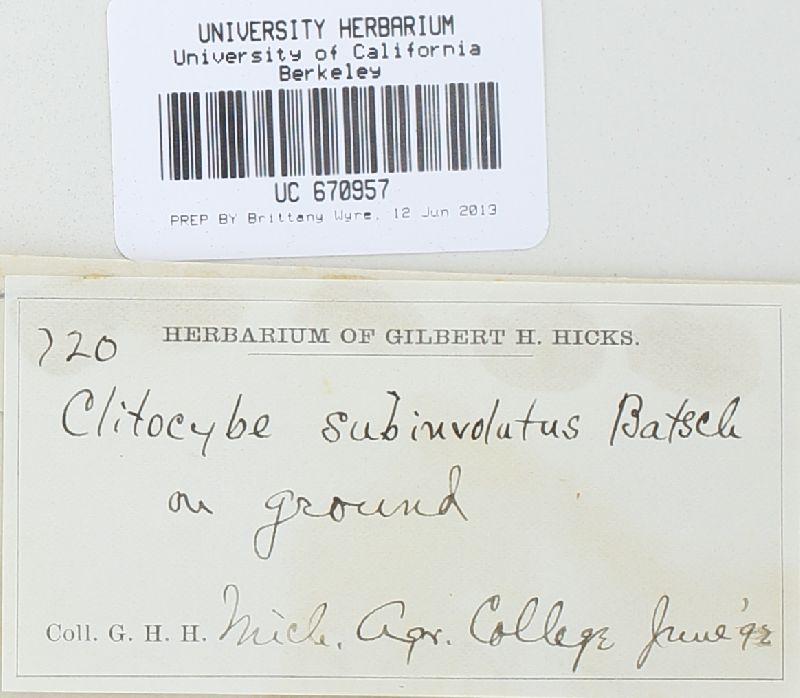 UNIVERSITY HERBARIUM
University of California
Berkeley
UC 670957
PREP BY Brittany Wyre, 12 Jun 2013
720 HERBARIUM OF GILBERT H. HICKS.
Clitocybe subinvolutus Batsch
on ground
Coll. G. H. H. Mich. Agr. College June '92